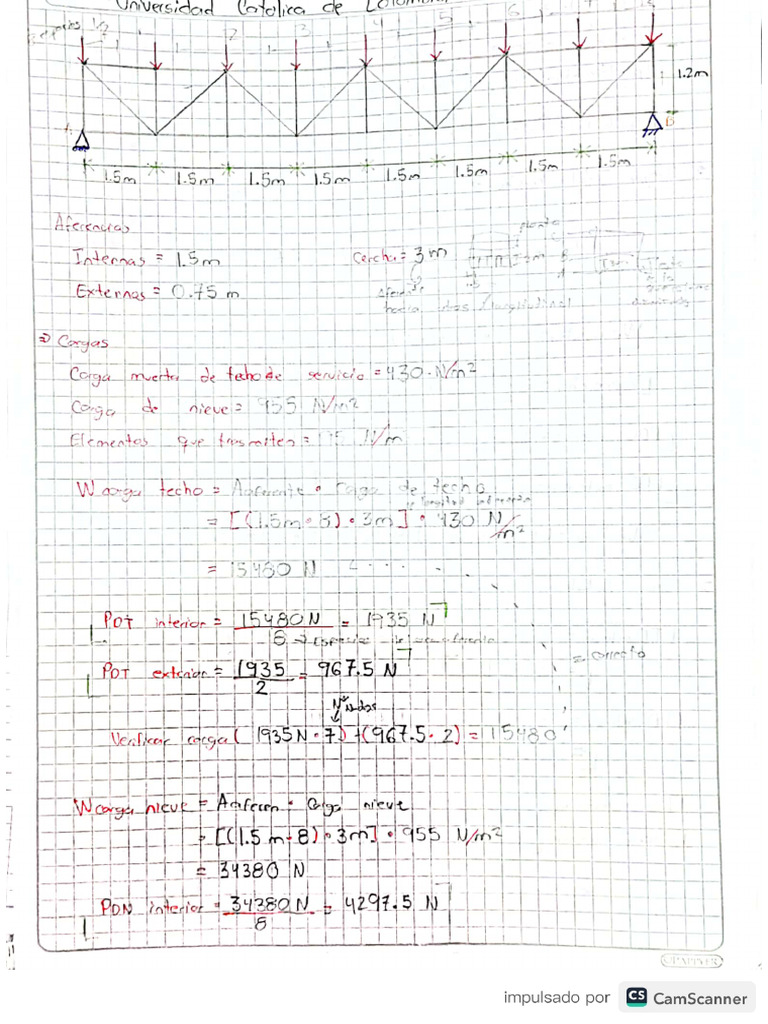 Universidad Católica de Colombia
1/2 2 3 4 5 6 7
1.2m
B
1.5m 1.5m 1.5m 1.5m 1.5m 1.5m 1.5m 1.5m
Aferencias
Internas = 1.5m
Cercha = 3m
Externas = 0.75 m
⇒ Cargas
Carga muerta de techo de servicio = 430 N/m²
Carga de nieve = 955 N/m²
Elementos que trasmiten = N/m
W carga techo = Aaferente • Carga de techo
= [(1.5m • 8) • 3m] • 430 N/m²
= 15480 N
PDT interior = 15480 N / 8 = 1935 N
PDT exterior = 1935 / 2 = 967.5 N
= correcto
Nº Nudos
Verificar carga (1935N • 7) + (967.5 • 2) = 15480
W carga nieve = Aaferen • Carga nieve
= [(1.5m • 8) • 3m] • 955 N/m²
= 34380 N
PDN interior = 34380 N / 8 = 4297.5 N
impulsado por CS CamScanner